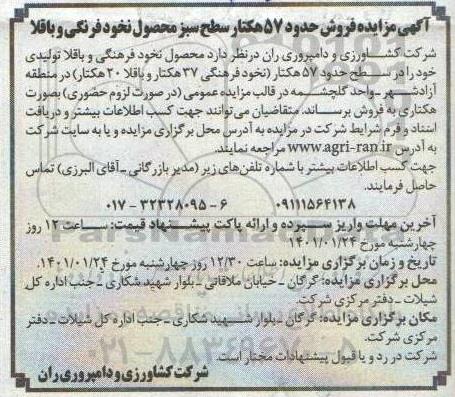 آگهی مزایده فروش حدود ۵۷ هکتار سطح سبز محصول نخود فرنگی و باقلا
شرکت کشاورزی و دامپروری ران درنظر دارد محصول نخود فرهنگی و باقلا تولیدی
خود را در سطح حدود ۵۷ هکتار (نخود فرهنگی ۳۷ هکتار و باقلا ۲۰ هکتار) در منطقه
آزادشهر - واحد گلچشمه در قالب مزایده عمومی (در صورت لزوم حضوری) بصورت
هکتاری به فروش برساند. متقاضیان می‌توانند جهت کسب اطلاعات بیشتر و دریافت
اسناد و فرم شرایط شرکت در مزایده به آدرس محل برگزاری مزایده و یا به سایت شرکت
به آدرس www.agri-ran.ir مراجعه نمایند.
جهت کسب اطلاعات بیشتر با شماره تلفن‌های زیر (مدیر بازرگانی - آقای البرزی) تماس
حاصل فرمایند.
۰۹۱۱۱۵۶۴۱۳۸ ۰۱۷ - ۳۲۳۲۸۰۹۵ - ۶
آخرین مهلت واریز سپرده و ارائه پاکت پیشنهاد قیمت: ساعت ۱۲ روز
چهارشنبه مورخ ۱۴۰۱/۰۱/۲۴
تاریخ و زمان برگزاری مزایده: ساعت ۱۲/۳۰ روز چهارشنبه مورخ ۱۴۰۱/۰۱/۲۴.
محل برگزاری مزایده: گرگان - خیابان ملاقاتی - بلوار شهید شکاری - جنب اداره کل
شیلات - دفتر مرکزی شرکت.
مکان برگزاری مزایده: گرگان - بلوار شهید شکاری - جنب اداره کل شیلات - دفتر
مرکزی شرکت.
شرکت در رد و یا قبول پیشنهادات مختار است.
شرکت کشاورزی و دامپروری ران
ParsNamadData
۰۲۱-۸۸۳۴۹۶۷۰-۵